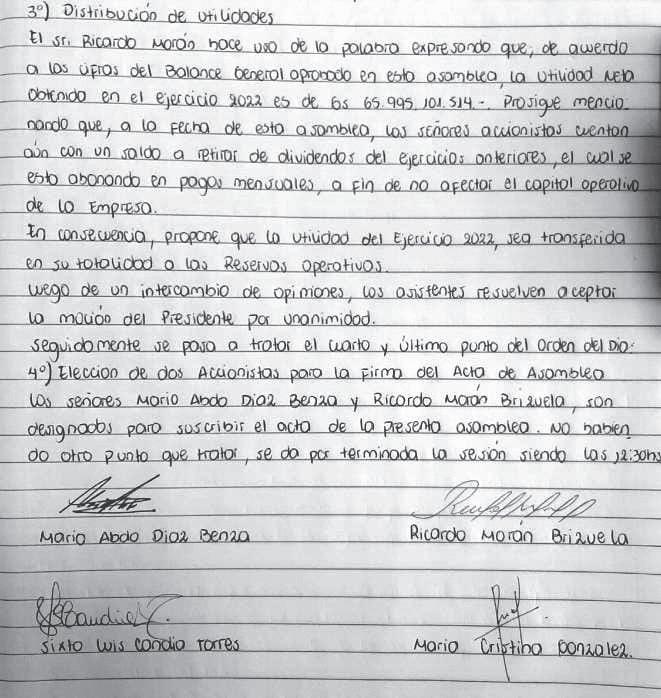 3º) Distribución de utilidades
El sr. Ricardo Morán hace uso de la palabra expresando que, de acuerdo
a las cifras del Balance General aprobado en esta asamblea, la utilidad Neta
obtenida en el ejercicio 2022 es de Gs 65.995.101.514-. Prosigue mencio-
nando que, a la fecha de esta asamblea, los señores accionistas cuentan
aún con un saldo a retirar de dividendos del ejercicios anteriores, el cual se
esta abonando en pagos mensuales, a fin de no afectar el capital operativo
de la Empresa.
En consecuencia, propone que la utilidad del Ejercicio 2022, sea transferida
en su totalidad a las Reservas Operativas.
Luego de un intercambio de opiniones, los asistentes resuelven aceptar
la moción del Presidente por unanimidad.
Seguidamente se pasa a tratar el cuarto y último punto del Orden del Día:
4º) Eleccion de dos Accionistas para la Firma del Acta de Asamblea
Los señores Mario Abdo Diaz Benza y Ricardo Morán Brizuela, son
designados para suscribir el acta de la presenta asamblea. No habien
do otro punto que tratar, se da por terminada la sesión siendo las 12:30hs
Mario Abdo Diaz Benza Ricardo Morán Brizuela
Sixto Luis Candia Torres Maria Cristina Gonzalez.